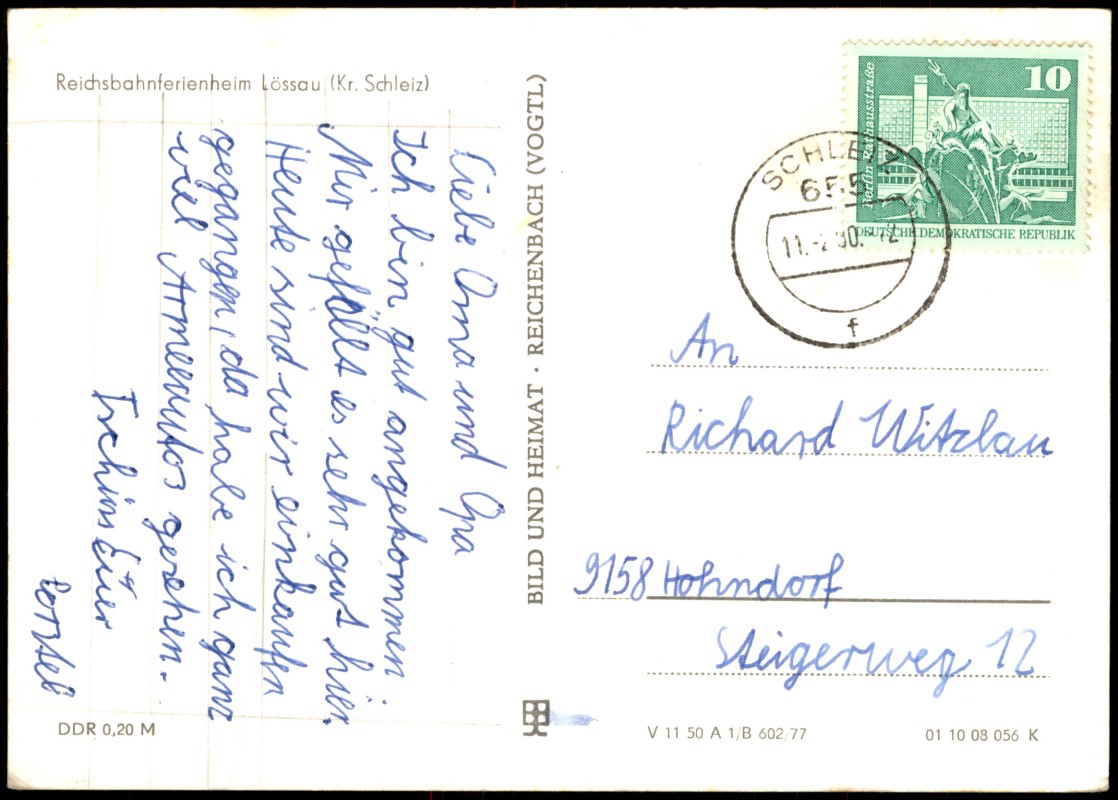 Reichsbahnferienheim Lössau (Kr. Schleiz)
Liebe Oma und Opa
Ich bin gut angekommen.
Mir gefällt es sehr gut hier.
Heute sind wir einkaufen
gegangen, da habe ich ganz
viel Armeeautos gesehen.
Tschüs Euer
DDR 0,20 M
BILD UND HEIMAT · REICHENBACH (VOGTL)
10
Berlin, Rathausstraße
DEUTSCHE DEMOKRATISCHE REPUBLIK
SCHLEIZ
655
f
An
Richard Witzlau
9158 Hohndorf
Steigerweg 12
V 11 50 A 1/B 602/77
01 10 08 056 K